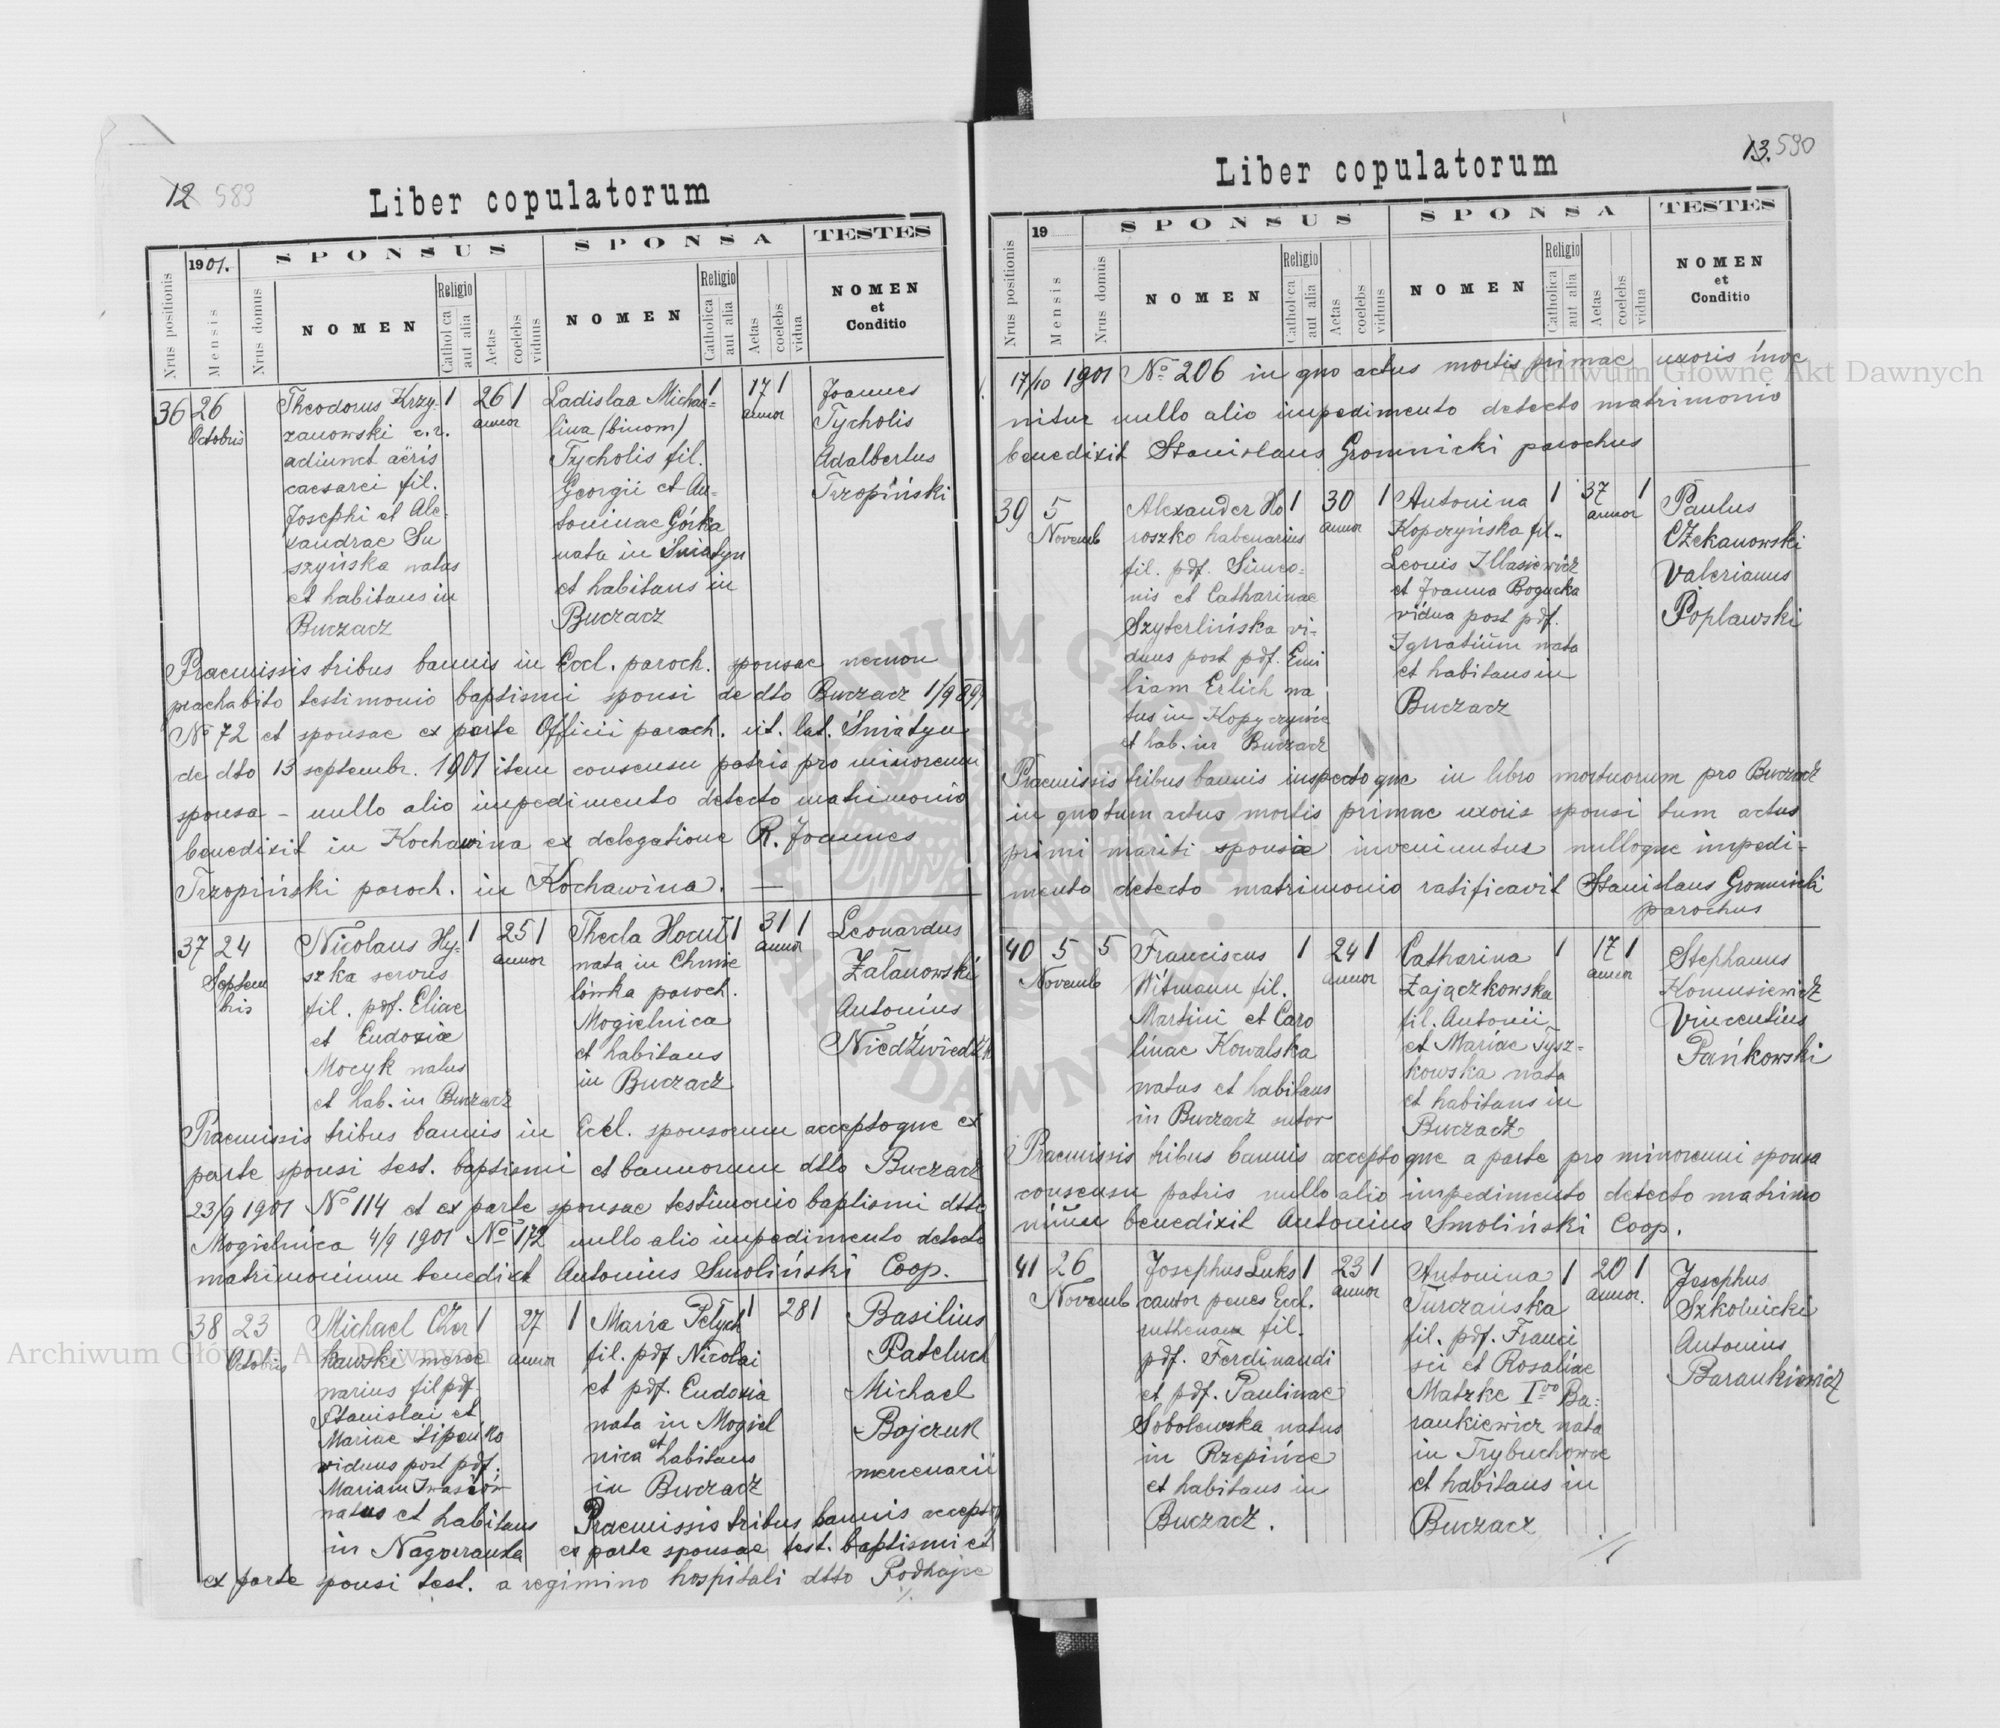 12 589
Liber copulatorum
Nrus positionis
1901.
Mensis
Nrus domus
SPONSUS
NOMEN
Religio
Catholica
aut alia
Aetas
coelebs
viduus
SPONSA
NOMEN
Religio
Catholica
aut alia
Aetas
coelebs
vidua
TESTES
NOMEN
et
Conditio
36 26 Octobris
Theodorus Krzy-
zanowski c.r.
adiunct aeris
caesarei fil.
Josephi et Ale-
xandrae Su
szyńska natus
et habitans in
Buczacz
1 26 annor 1
Ladislaa Michae-
lina (binom)
Tycholis fil.
Georgii et An-
toninae Górka
nata in Śniatyn
et habitans in
Buczacz
1 17 annor 1
Joannes
Tycholis
Adalbertus
Trzopiński
Praemissis tribus bannis in Eccl. paroch. sponsae necnon
praehabito testimonio baptismi sponsi de dto Buczacz 1/9 897
No 72 et sponsae ex parte Officii paroch. rit. lat. Śniatyn
de dto 13 septembr. 1901 item consensu patris pro minorenni
sponsa - nullo alio impedimento detecto matrimonio
benedixit in Kochawina ex delegatione R. Joannes
Trzopiński paroch. in Kochawina. —
37 24 Septem
bris
Nicolaus Hy-
szka servus
fil. pdf. Eliae
et Eudoxiae
Mocyk natus
et hab. in Buczacz
1 25 annor 1
Thecla Hocuł
nata in Chmie
lówka paroch.
Mogielnica
et habitans
in Buczacz
1 31 annor 1
Leonardus
Załanowski
Antonius
Niedźwiedzk
Praemissis tribus bannis in Eccl. sponsorum acceptoque ex
parte sponsi test. baptismi et bannorum dtto Buczacz
23/9 1901 No 114 et ex parte sponsae testimonio baptismi dtto
Mogielnica 4/9 1901 No 172 nullo alio impedimento detecto
matrimonium benedixit Antonius Smoliński Coop.
38 23 Octobris
Michael Czer
kawski merce
narius fil pdf
Stanislai et
Mariae Lipeńko
viduus post pdf.
Mariam Iwasiów
natus et habitans
in Nagorzanka
1 27 annor 1
Maria Petych
fil. pdf Nicolai
et pdf. Eudoxia
nata in Mogiel
nica et habitans
in Buczacz
1 28 1
Basilius
Pateluch
Michael
Bojczuk
mercenarii
Praemissis tribus bannis accepto
ex parte sponsae test. baptismi et
ex parte sponsi test. a regimino hospitali dtto Podhajce
./.
13. 590
Liber copulatorum
Nrus positionis
19
Mensis
Nrus domus
SPONSUS
NOMEN
Religio
Catholica
aut alia
Aetas
coelebs
viduus
SPONSA
NOMEN
Religio
Catholica
aut alia
Aetas
coelebs
vidua
TESTES
NOMEN
et
Conditio
17/10 1901 No 206 in quo actus mortis primae uxoris inve
nitur nullo alio impedimento detecto matrimonio
benedixit Stanislaus Gromnicki parochus
39 5 Novemb
Alexander Ho
roszko habenarius
fil. pdf. Simeo-
nis et Catharinae
Szyterlińska vi-
duus post pdf. Emi
liam Erlich na
tus in Kopyczyńce
et hab. in Buczacz
1 30 annor 1
Antonina
Kopczyńska fil.
Leonis Illasiewicz
et Joanna Bogucka
vidua post pdf.
Ignatium nata
et habitans in
Buczacz
1 37 annor 1
Paulus
Czekanowski
Valerianus
Popławski
Praemissis tribus bannis inspectoque in libro mortuorum pro Buczacz
in quo tum actus mortis primae uxoris sponsi tum actus
primi mariti sponsae inveniuntur nulloque impedi-
mento detecto matrimonio ratificavit Stanislaus Gromnicki
parochus
40 5 Novemb 5
Franciscus
Witmann fil.
Martini et Caro
linae Kowalska
natus et habitans
in Buczacz sutor
1 24 annor 1
Catharina
Zajączkowska
fil. Antonii
et Mariae Tysz-
kowska nata
et habitans in
Buczacz
1 17 annor 1
Stephanus
Komusiewicz
Vincentius
Pańkowski
Praemissis tribus bannis acceptoque a parte pro minorenni sponsa
consensu patris nullo alio impedimento detecto matrimo
nium benedixit Antonius Smoliński Coop.
41 26 Novemb
Josephus Luks
cantor penes Eccl.
ruthenam fil.
pdf. Ferdinandi
et pdf. Paulinae
Sobolewska natus
in Rzepińce
et habitans in
Buczacz.
1 23 annor 1
Antonina
Turczańska
fil. pdf. Franci
sci et Rosaliae
Matzke Ivo Ba-
rankiewicz nata
in Trybuchowce
et habitans in
Buczacz
1 20 annor. 1
Josephus
Szkolnicki
Antonius
Barankiewicz
./.
Archiwum Główne Akt Dawnych
Archiwum Główne Akt Dawnych
ARCHIWUM GŁÓWNE AKT DAWNYCH